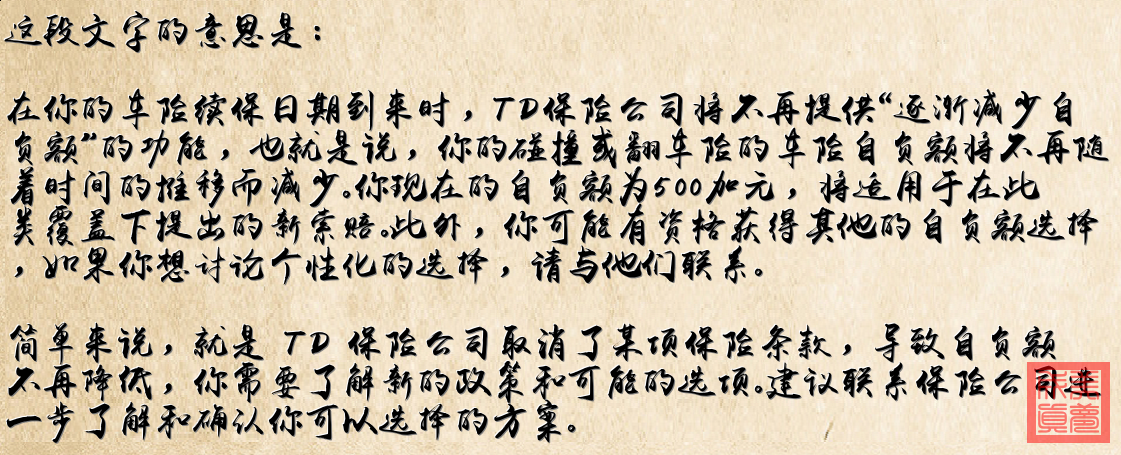 这段文字的意思是：
在你的车险续保日期到来时，TD保险公司将不再提供“逐渐减少自
负额”的功能，也就是说，你的碰撞或翻车险的车险自负额将不再随
着时间的推移而减少。你现在的自负额为500加元，将适用于在此
类覆盖下提出的新索赔。此外，你可能有资格获得其他的自负额选择
，如果你想讨论个性化的选择，请与他们联系。
简单来说，就是 TD 保险公司取消了某项保险条款，导致自负额
不再降低，你需要了解新的政策和可能的选项。建议联系保险公司进
一步了解和确认你可以选择的方案。